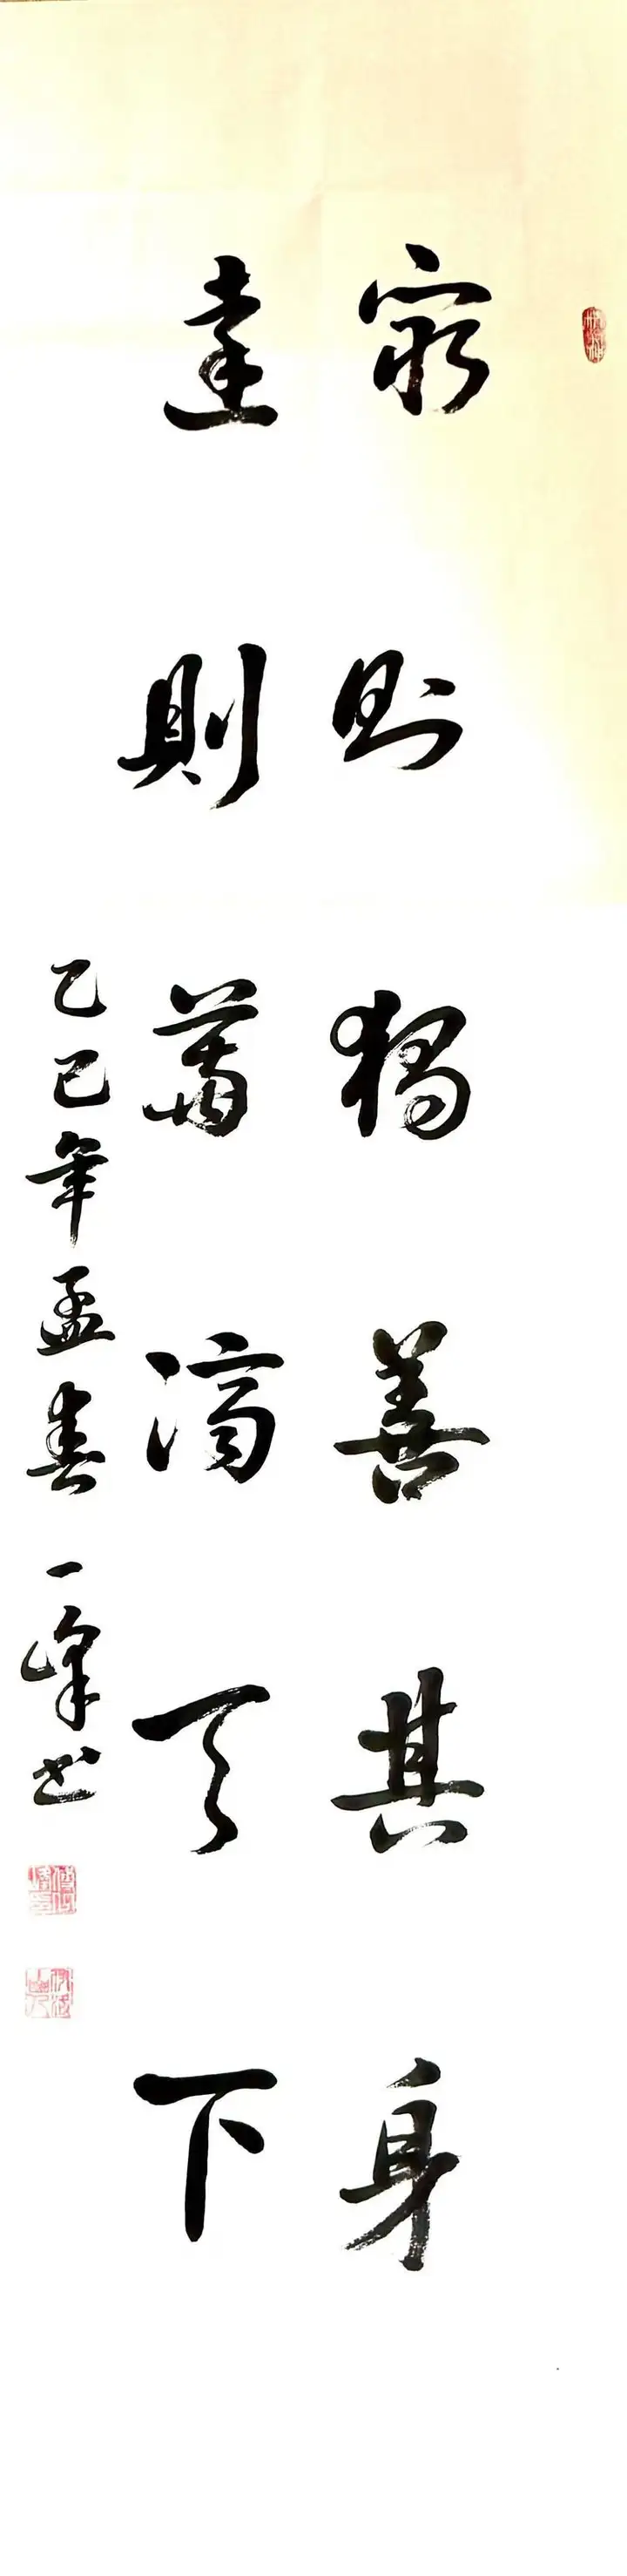 窮則獨善其身
達則兼濟天下
乙巳年孟春 一峰书